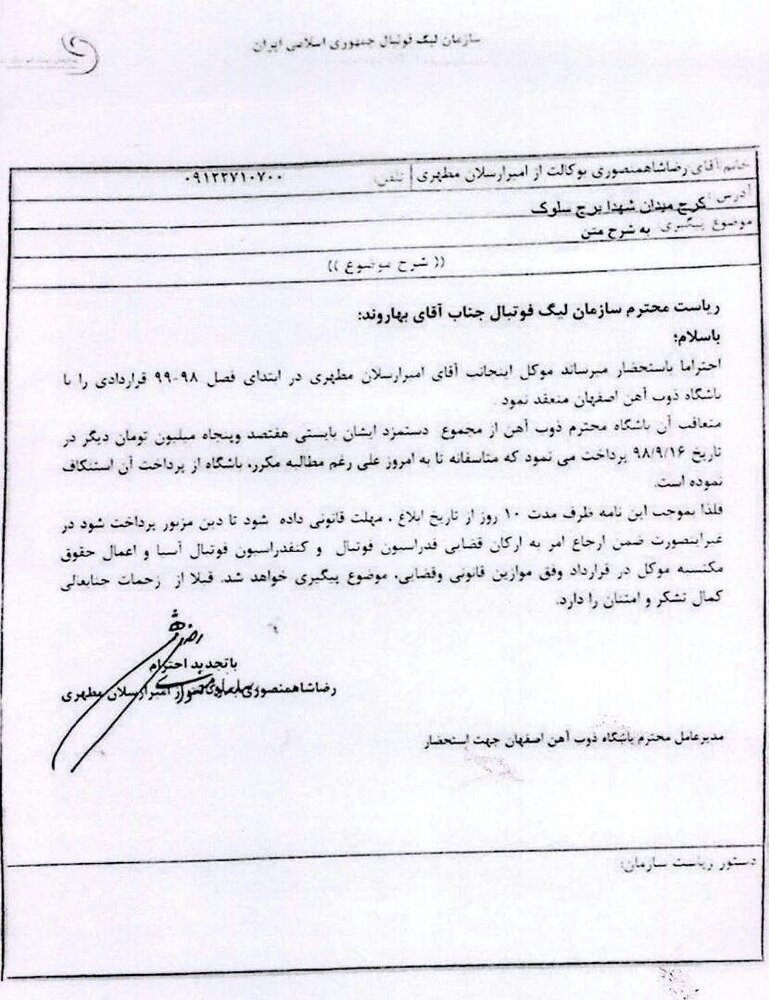 سازمان لیگ فوتبال جمهوری اسلامی ایران
خانم/آقای رضاشاهمنصوری بوکالت از امیرارسلان مطهری تلفن: ۰۹۱۲۲۷۱۰۷۰۰
آدرس: کرج میدان شهدا برج سلوک
موضوع پیگیری: به شرح متن
(( شرح موضوع ))
ریاست محترم سازمان لیگ فوتبال جناب آقای بهاروند:
باسلام؛
احتراما باستحضار میرساند موکل اینجانب آقای امیرارسلان مطهری در ابتدای فصل ۹۸-۹۹ قراردادی را با
باشگاه ذوب آهن اصفهان منعقد نمود.
متعاقب آن باشگاه محترم ذوب آهن از مجموع دستمزد ایشان بایستی هفتصد وپنجاه میلیون تومان دیگر در
تاریخ ۹۸/۹/۱۶ پرداخت می نمود که متاسفانه تا به امروز علی رغم مطالبه مکرر، باشگاه از پرداخت آن استنکاف
نموده است.
فلذا بموجب این نامه ظرف مدت ۱۰ روز از تاریخ ابلاغ ، مهلت قانونی داده شود تا دین مزبور پرداخت شود در
غیراینصورت ضمن ارجاع امر به ارکان قضایی فدراسیون فوتبال و کنفدراسیون فوتبال آسیا و اعمال حقوق
مکتسبه موکل در قرارداد وفق موازین قانونی وقضایی، موضوع پیگیری خواهد شد. قبلا از زحمات جنابعالی
کمال تشکر و امتنان را دارد.
باتجدید احترام
رضاشاهمنصوری از امیرارسلان مطهری
مدیرعامل محترم باشگاه ذوب آهن اصفهان جهت استحضار
دستور ریاست سازمان: